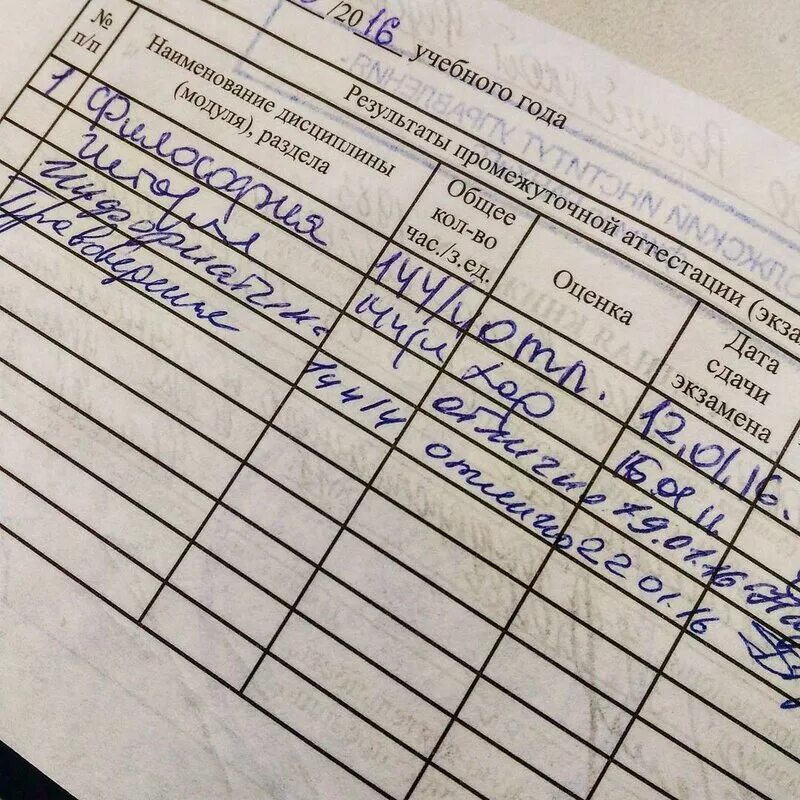 /2016 учебного года
Результаты промежуточной аттестации (экза
№ п/п
Наименование дисциплины (модуля), раздела
Общее кол-во час./з.ед.
Оценка
Дата сдачи экзамена
1 Философия 144/4 отл. 12.01.16.
История 144/4 хор 16.01
Информатика отлично 19.01.16
Правоведение 144/4 отлично 22.01.16